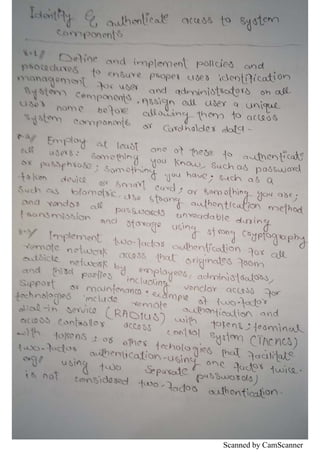 Identity & authenticate access to system
components
8.1 Define and implement policies and
procedures to ensure proper user identification
management for user and administrators on all
system components. Assign all user a unique
user name before allowing them to access
system components or cardholder data.
8.2 Employ at least one of these to authenticate
all users: Something you know, such as password
or passphrase; Something you have; such as a
token device or smart card; or something you are;
such as biometric. Use strong authentication method
and rendor all passwords unreadable during
transmission and storage using strong cryptography
8.3 Implement two-factor authentication for all
remote network access that originates from
outside network by employees, administrators,
and third parties including vendor access for
support or maintenance. Example of two-factor
technologies include remote authentication and
dial-in service (RADIUS) with tokens; terminal
access controler access control system (TACACS)
with tokens; or other techologies that facilitate
two-factor authentication-using one factor twice.
eg: using two separate passwords)
is not considered two-factor authentication.
Scanned by CamScanner